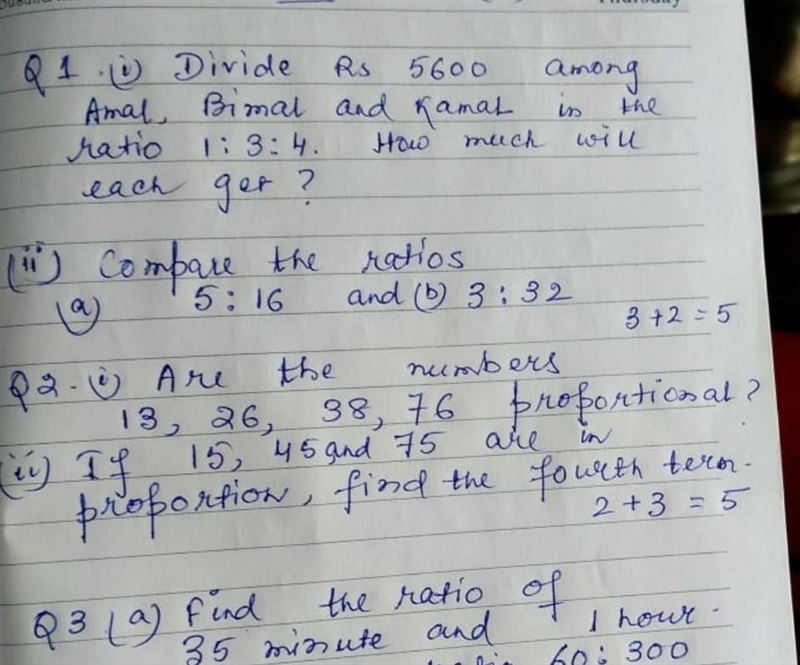 Thursday
Q1. (i) Divide Rs 5600 among
Amal, Bimal and Kamal in the
ratio 1:3:4. How much will
each get?
(ii) Compare the ratios
(a) 5:16 and (b) 3:32
3+2=5
Q2. (i) Are the numbers
13, 26, 38, 76 proportional?
(ii) If 15, 45 and 75 are in
proportion, find the fourth term.
2+3=5
Q3 (a) Find the ratio of
35 minute and 1 hour.
60:300